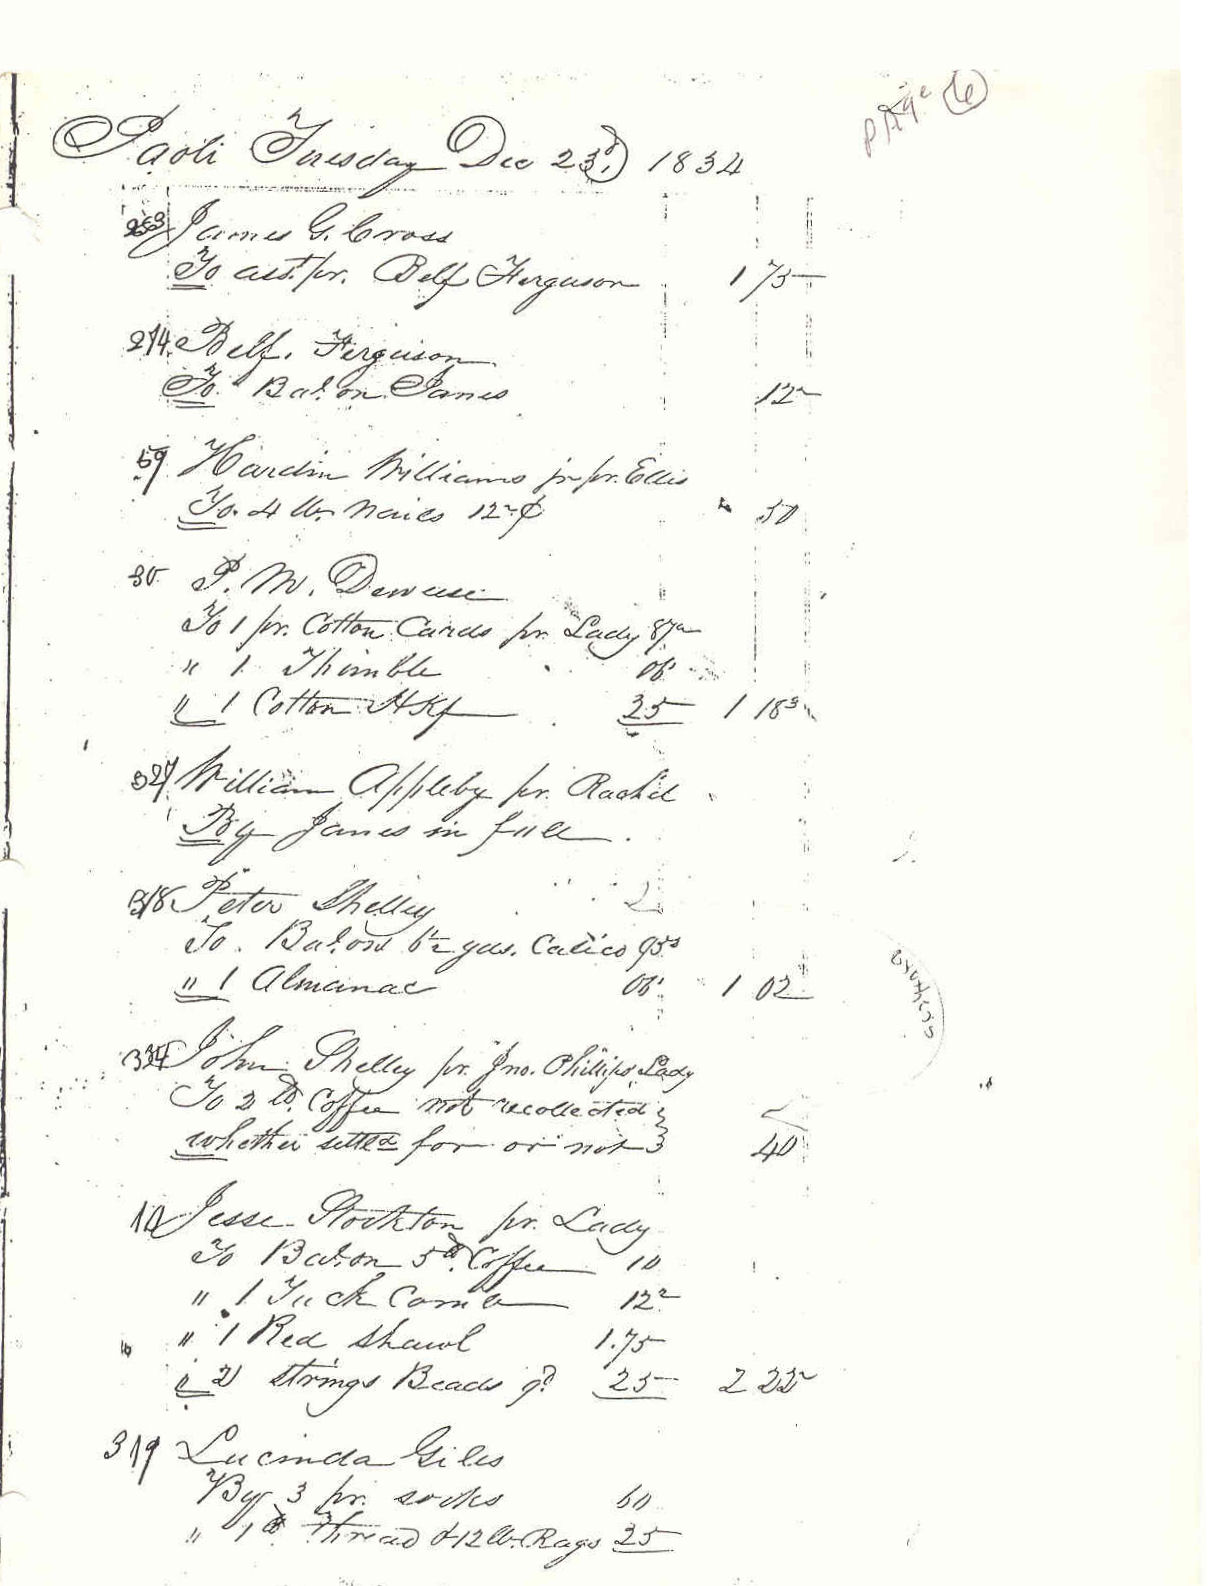 Page 6
Paoli Tuesday Dec 23d, 1834
253 James G. Cross
To asst. pr. Belf Ferguson 1 75
214 Belf. Ferguson
To Bal. on Janes 12 2
59 Hardin Williams jr pr. Ellis
To 4 lb. Nails 12 2 ¢ 50
30 P. M. Deweese
To 1 pr. Cotton Cards pr Lady 87 2
" 1 Thimble 06
" 1 Cotton Hkf 25 1 18 3
327 William Appleby pr. Rachel
By Janes in full
318 Peter Shelley
To. Bal. on 6 1/2 yds. Calico 95 3
" 1 Almanac 06 1 02
334 John Shelley pr. Jno. Phillips Lady
To 2 lb. Coffee not recollected
whether settld for or not 40
10 Jesse Stockton pr. Lady
To Bal. on 5 lb. Coffee 10
" 1 Tuck Comb 12 2
" 1 Red Shawl 1.75
" 2 Strings Beads gd 25 2 22 2
319 Lucinda Giles
By 3 pr. socks 60
" 1 lb Thread & 12 lb. Rags 25